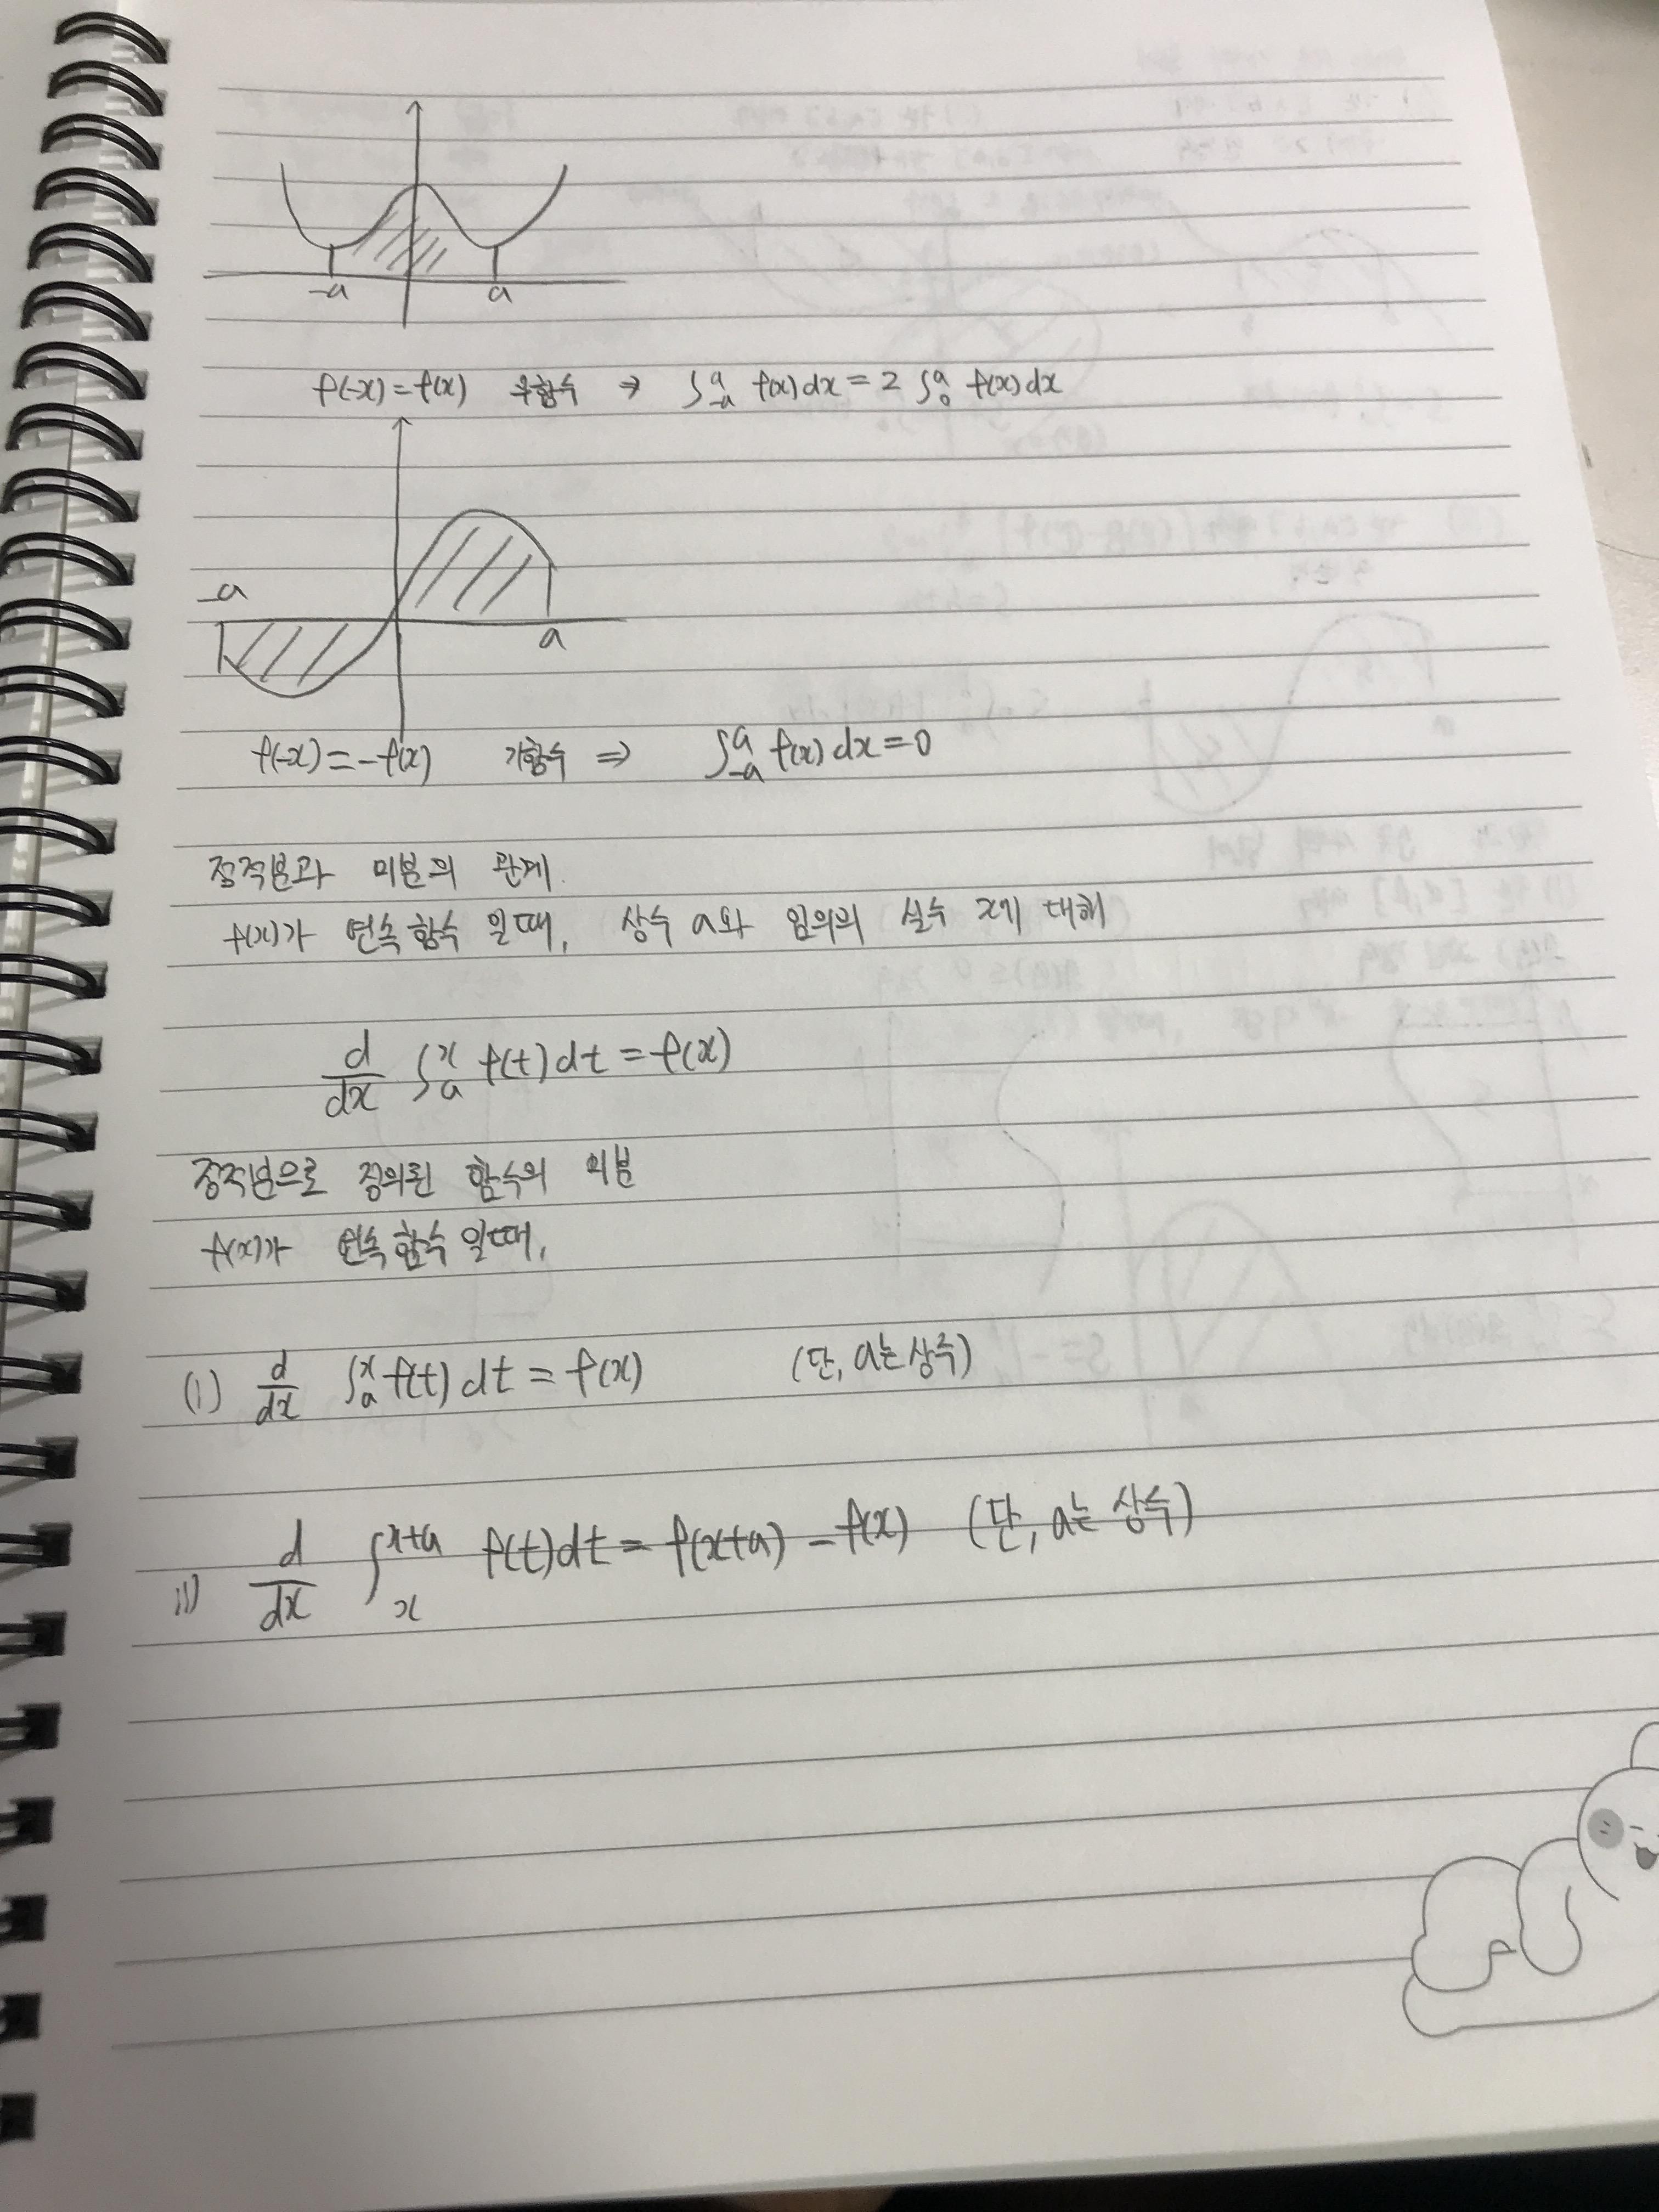 -a a
f(-x)=f(x) 우함수 ⇒ ∫_{-a}^{a} f(x)dx = 2 ∫_{0}^{a} f(x)dx
-a
a
f(-x)=-f(x) 기함수 ⇒ ∫_{-a}^{a} f(x)dx=0
정적분과 미분의 관계.
f(x)가 연속함수 일때, 상수 a와 임의의 실수 x에 대해
d/dx ∫_{a}^{x} f(t)dt = f(x)
정적분으로 정의된 함수의 미분
f(x)가 연속함수일때,
(i) d/dx ∫_{a}^{x} f(t)dt = f(x) (단, a는 상수)
ii) d/dx ∫_{x}^{x+a} f(t)dt = f(x+a) - f(x) (단, a는 상수)